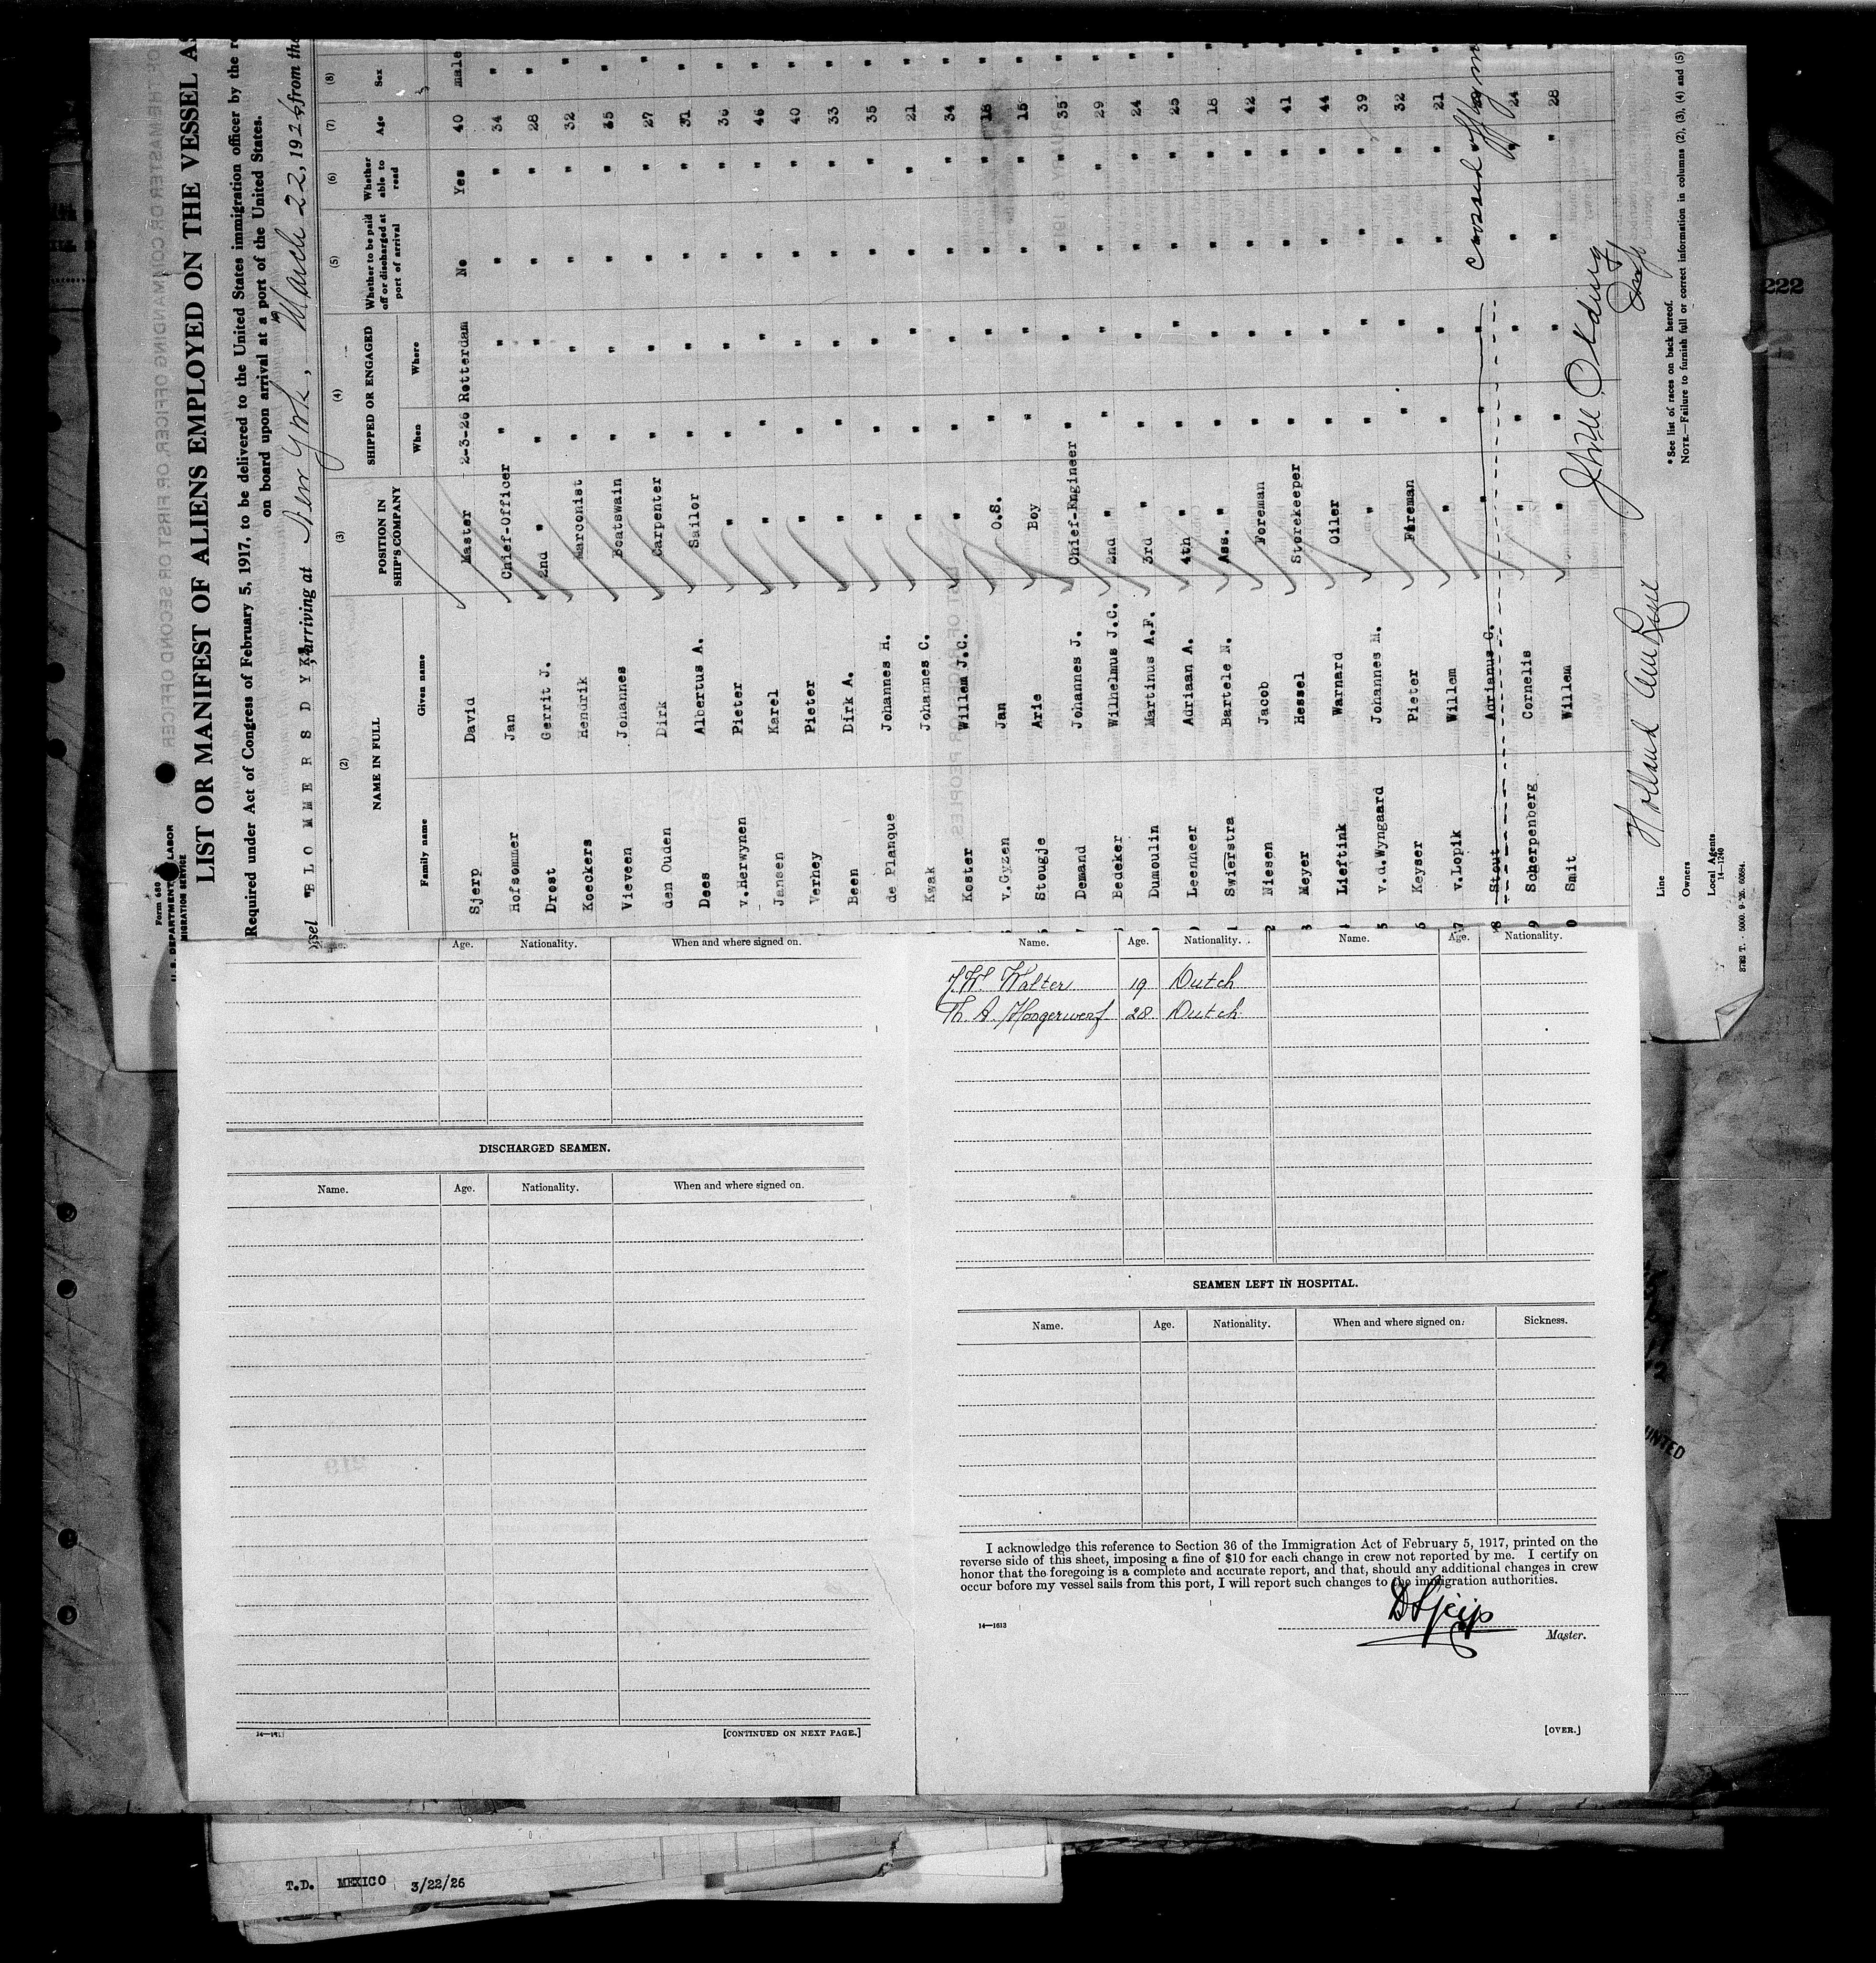 Form 680
U. S. DEPARTMENT LABOR
MIGRATION SERVICE
LIST OR MANIFEST OF ALIENS EMPLOYED ON THE VESSEL AS
Required under Act of Congress of February 5, 1917, to be delivered to the United States immigration officer by the
on board upon arrival at a port of the United States.
ssel "B L O M M E R S D Y K", arriving at New York, March 22, 1926, from the
(2) (3) (4) (5) (6) (7) (8)
NAME IN FULL POSITION IN SHIP'S COMPANY SHIPPED OR ENGAGED Whether to be paid off or discharged at port of arrival Whether able to read Age Sex
Family name Given name When Where
Sjerp David Master 2-3-26 Rotterdam No Yes 40 male
Hofsommer Jan Chief-Officer " " " " 34 "
Drost Gerrit J. 2nd " " " " " 28 "
Koeckers Hendrik Marconist " " " " 32 "
Vieveen Johannes Boatswain " " " " 35 "
den Ouden Dirk Carpenter " " " " 27 "
Dees Albertus A. Sailor " " " " 31 "
v.Herwynen Pieter " " " " " 36 "
Jansen Karel " " " " " 46 "
Verhey Pieter " " " " " 40 "
Been Dirk A. " " " " " 33 "
de Planque Johannes H. " " " " " 35 "
Kwak Johannes C. " " " " " 21 "
Koster Willem J.C. " " " " " 34 "
v.Gyzen Jan O.S. " " " " 18 "
Stougje Arie Boy " " " " 15 "
7 Demand Johannes J. Chief-Engineer " " " " 35 "
8 Bedeker Wilhelmus J.C. 2nd " " " " " 29 "
Dumoulin Martinus A.F. 3rd " " " " " 24 "
0 Leenheer Adriaan A. 4th " " " " " 25 "
1 Swierstra Bartele N. Ass. " " " " " 18 "
2 Niesen Jacob Foreman " " " " 42 "
3 Meyer Hessel Storekeeper " " " " 41 "
4 Lieftink Warnard Oiler " " " " 44 "
5 v.d.Wyngaard Johannes M. " " " " " 39 "
6 Keyser Pieter Fireman " " " " 32 "
7 v.Lopik Willem " " " " " 21 "
8 Stout Adrianus C. " " " crossed off
9 Scherpenberg Cornelis " " " " " 24 "
0 Smit Willem " " " " " 28 "
Line Holland Am Line
Owners
Local Agents
14-1240
* See list of races on back hereof.
NOTE.—Failure to furnish full or correct information in columns (2), (3), (4) and (5)
222
Age. Nationality. When and where signed on.
DISCHARGED SEAMEN.
Name. Age. Nationality. When and where signed on.
14—1611
[CONTINUED ON NEXT PAGE.]
Name. Age. Nationality. Name. Age. Nationality.
J.W. Walter 19 Dutch
Th. A. Hoogerwerf 28 Dutch
SEAMEN LEFT IN HOSPITAL.
Name. Age. Nationality. When and where signed on. Sickness.
I acknowledge this reference to Section 36 of the Immigration Act of February 5, 1917, printed on the
reverse side of this sheet, imposing a fine of $10 for each change in crew not reported by me. I certify on
honor that the foregoing is a complete and accurate report, and that, should any additional changes in crew
occur before my vessel sails from this port, I will report such changes to the immigration authorities.
D Sjerp
14—1613
Master.
[OVER.]
T.D. MEXICO 3/22/26